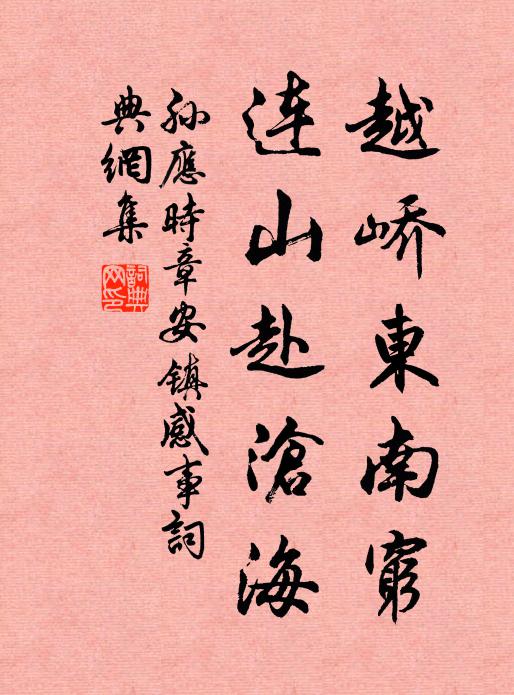 越嶠東南窮
連山赴滄海
孫應時章安鎮感事詞
典網集
詞典网印